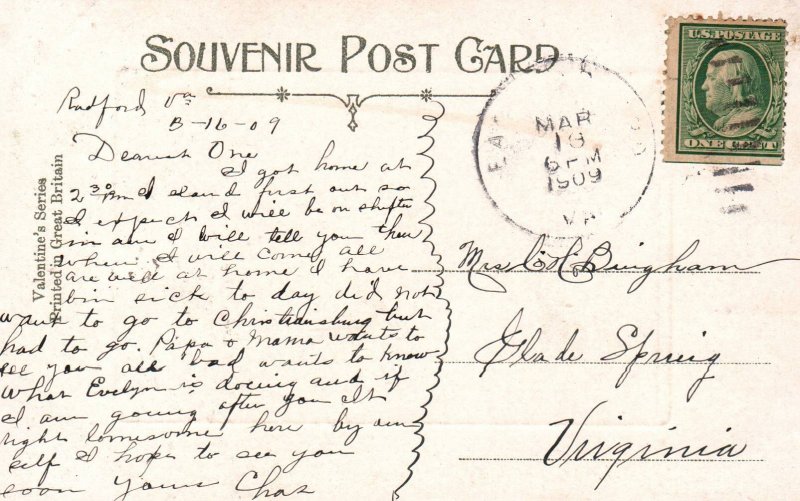 SOUVENIR POST CARD
Radford Va
3-16-09
Dearest One
I got home at
2 30 am I stand first out so
I expect I will be on shifter
in am I will tell you then
when I will come all
are well at home I have
bin sick to day did not
want to go to Christiansburg but
had to go. Papa & Mama wants to
see you all bad wants to know
what Evelyn is doeing and if
I am going after you It
right lonesome here by my
self I hope to see you
soon yours Chas
Valentine's Series
Printed in Great Britain
U.S. POSTAGE
ONE CENT
MAR
6 PM
1909
VA
Mrs C H Bingham
Glade Spring
Virginia